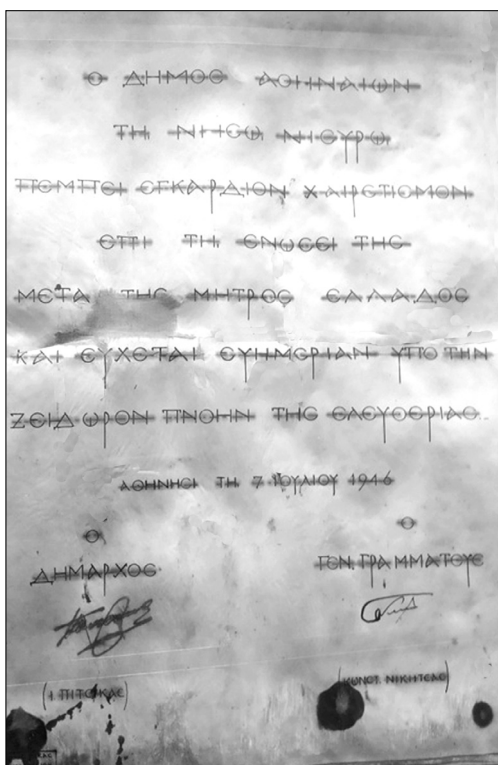 Ο ΔΗΜΟΣ ΑΘΗΝΑΙΩΝ
ΤΗ ΝΗΣΩ ΝΙΣΥΡΩ
ΠΕΜΠΕΙ ΕΓΚΑΡΔΙΟΝ ΧΑΙΡΕΤΙΣΜΟΝ
ΕΠΙ ΤΗ ΕΝΩΣΕΙ ΤΗΣ
ΜΕΤΑ ΤΗΣ ΜΗΤΡΟΣ ΕΛΛΑΔΟΣ
ΚΑΙ ΕΥΧΕΤΑΙ ΕΥΗΜΕΡΙΑΝ ΥΠΟ ΤΗΝ
ΖΕΙΔΩΡΟΝ ΠΝΟΗΝ ΤΗΣ ΕΛΕΥΘΕΡΙΑΣ
ΑΘΗΝΗΣΙ ΤΗ 7 ΙΟΥΛΙΟΥ 1946
Ο
ΔΗΜΑΡΧΟΣ
(Ι. ΠΙΤΣΙΚΑΣ)
Ο
ΓΕΝ. ΓΡΑΜΜΑΤΕΥΣ
(ΚΩΝΣΤ. ΝΙΚΗΤΕΑΣ)